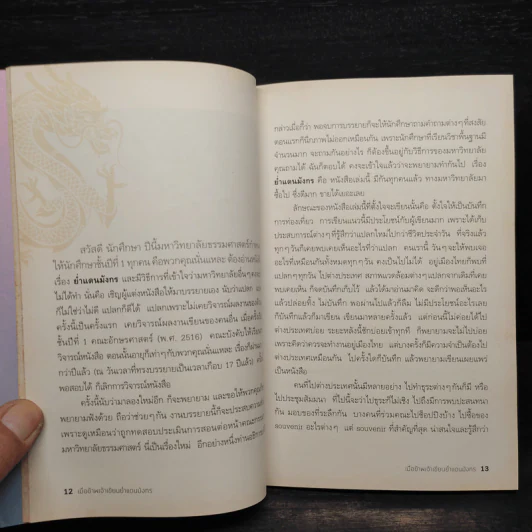 สวัสดี นักศึกษา ปีนี้มหาวิทยาลัยธรรมศาสตร์กำหนด
ให้นักศึกษาชั้นปีที่ 1 ทุกคน คือพวกคุณนั่นแหละ ต้องอ่านหนังสือ
เรื่อง ย่ำแดนมังกร และมีวิธีการที่เข้าใจว่ามหาวิทยาลัยอื่นๆคง
ไม่ได้ทำ นั่นคือ เชิญผู้แต่งหนังสือให้มาบรรยายเอง นับว่าแปลก
ก็ไม่ใช่ว่าไม่ดี แปลกก็ดีได้ แปลกเพราะไม่เคยวิจารณ์ผลงานของ
ครั้งนี้เป็นครั้งแรก เคยวิจารณ์ผลงานเขียนของคนอื่น เมื่อครั้ง
ชั้นปีที่ 1 คณะอักษรศาสตร์ (พ.ศ. 2516) คณะบังคับให้เรียน
วิจารณ์หนังสือ ตอนนั้นอายุก็เท่าๆกับพวกคุณนั่นแหละ เรื่องก็ผ่าน
กว่าปีแล้ว (ณ วันเวลาที่ทรงบรรยายเป็นเวลาเกือบ 17 ปีแล้ว)
พอสอบได้ ก็เลิกการวิจารณ์หนังสือ
ครั้งนี้นับว่ามาลองใหม่อีก ก็จะพยายาม และขอให้พวกคุณ
พยายามฟังด้วย ถือว่าช่วยๆกัน งานบรรยายนี้ก็จะประสบความ
เพราะดูเหมือนว่าถูกทดสอบประเมินการสอนต่อหน้าคณะ
มหาวิทยาลัยธรรมศาสตร์ นี่เป็นเรื่องใหม่ อีกอย่างหนึ่งท่านอธิการ
12 เมื่อข้าพเจ้าเขียนย่ำแดนมังกร
กล่าวเมื่อกี้ว่า พอจบการบรรยายก็จะให้นักศึกษาถามคำถามต่างๆที่สงสัย
ตอนแรกก็นึกภาพไม่ออกเหมือนกัน เพราะนักศึกษาที่เรียนวิชาพื้นฐานมี
จำนวนมาก จะถามกันอย่างไร ก็ต้องขึ้นอยู่กับวิธีการของมหาวิทยาลัย
คุณถามได้ ฉันก็ตอบได้ คงจะเข้าใจแล้วว่าจะพยายามทำกันไป เรื่อง
ย่ำแดนมังกร คือ หนังสือเล่มนี้ มีกันทุกคนแล้ว ทางมหาวิทยาลัยมา
ซื้อไป ซึ่งดีมาก ขายได้เยอะเลย
ลักษณะของหนังสือเล่มนี้ที่ตั้งใจจะเขียนนั้นคือ ตั้งใจให้เป็นบันทึก
การท่องเที่ยว การเขียนแนวนี้มีประโยชน์กับผู้เขียนมาก เพราะได้เก็บ
ประสบการณ์ต่างๆที่รู้สึกว่าแปลกใหม่ไปกว่าชีวิตประจำวัน ที่จริงแล้ว
ทุกๆวันก็เคยพบเคยเห็นอะไรที่ว่าแปลก คนเรานี้ วันๆจะให้พบเจอ
อะไรที่เหมือนกันทั้งหมดทุกๆวัน คงเป็นไปไม่ได้ อยู่เมืองไทยก็พบที่
แปลกๆทุกวัน ไปต่างประเทศ สภาพแวดล้อมต่างๆแปลกจากเดิมที่เคย
พบเคยเห็น ก็จดบันทึกเก็บไว้ แล้วได้มาอ่านมาคิด จะดีกว่าพอเห็นอะไร
แล้วปล่อยทิ้ง ไม่บันทึก พอผ่านไปแล้วก็ลืม ไม่มีประโยชน์อะไรเลย
ก็บันทึกแล้วก็มาเขียน เขียนมาหลายครั้งแล้ว แต่ก่อนนี้ไม่ค่อยได้ไป
ต่างประเทศบ่อย ระยะหลังนี้ชักบ่อยเข้าทุกที ก็พยายามจะไม่ไปบ่อย
เพราะคิดว่าควรจะทำงานอยู่เมืองไทย แต่บางครั้งก็มีความจำเป็นต้องไป
ต่างประเทศเหมือนกัน ไปครั้งใดก็บันทึก แล้วพยายามเขียนเผยแพร่
เป็นหนังสือ
คนที่ไปต่างประเทศนั้นมีหลายอย่าง ไปทำธุระต่างๆกันก็มี หรือ
ไปประชุมสัมมนา ที่ไปนี้จะว่าไปธุระก็ไม่เชิง ไปถึงมีการพบปะสนทนา
กัน มอบของที่ระลึกกัน บางคนที่ร่วมคณะไปช็อปปิงบ้าง ไปซื้อของ
souvenir อะไรต่างๆ แต่ souvenir ที่สำคัญที่สุด น่าสนใจและรู้สึกว่า
เมื่อข้าพเจ้าเขียนย่ำแดนมังกร 13